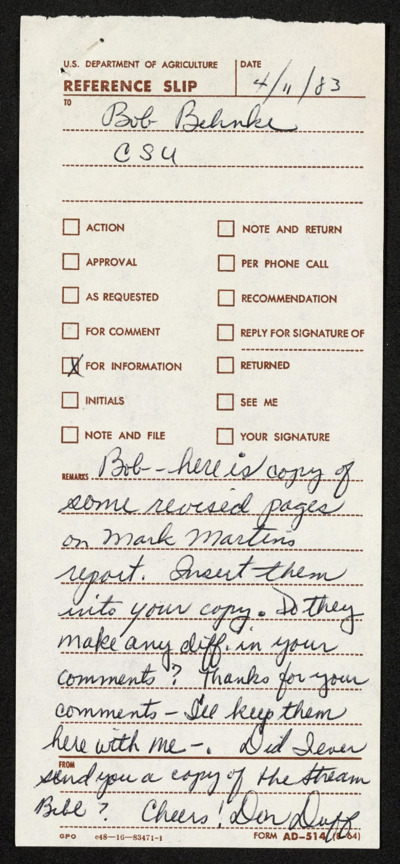 U.S. DEPARTMENT OF AGRICULTURE
REFERENCE SLIP
DATE
4/11/83
TO
Bob Behnke
CSU
ACTION
NOTE AND RETURN
APPROVAL
PER PHONE CALL
AS REQUESTED
RECOMMENDATION
FOR COMMENT
REPLY FOR SIGNATURE OF
X FOR INFORMATION
RETURNED
INITIALS
SEE ME
NOTE AND FILE
YOUR SIGNATURE
REMARKS
Bob -- here is copy of
some revised pages
on Mark Martins
report. Insert them
into your copy. Do they
make any diff. in your
comments? Thanks for your
comments - I'll keep them
here with me -. Did I ever
FROM
send you a copy of the Stream
Bibl? Cheers! Don Duff
GPO c48-16-83471-1
FORM AD-514 (8-64)